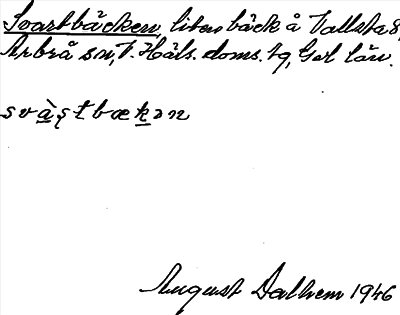 Svartbäcken, liten bäck å Vallsta 8,
Arbrå sn, V. Häls. doms. tg, Gvl län.
svàṣtbækən
August Dalhem 1946